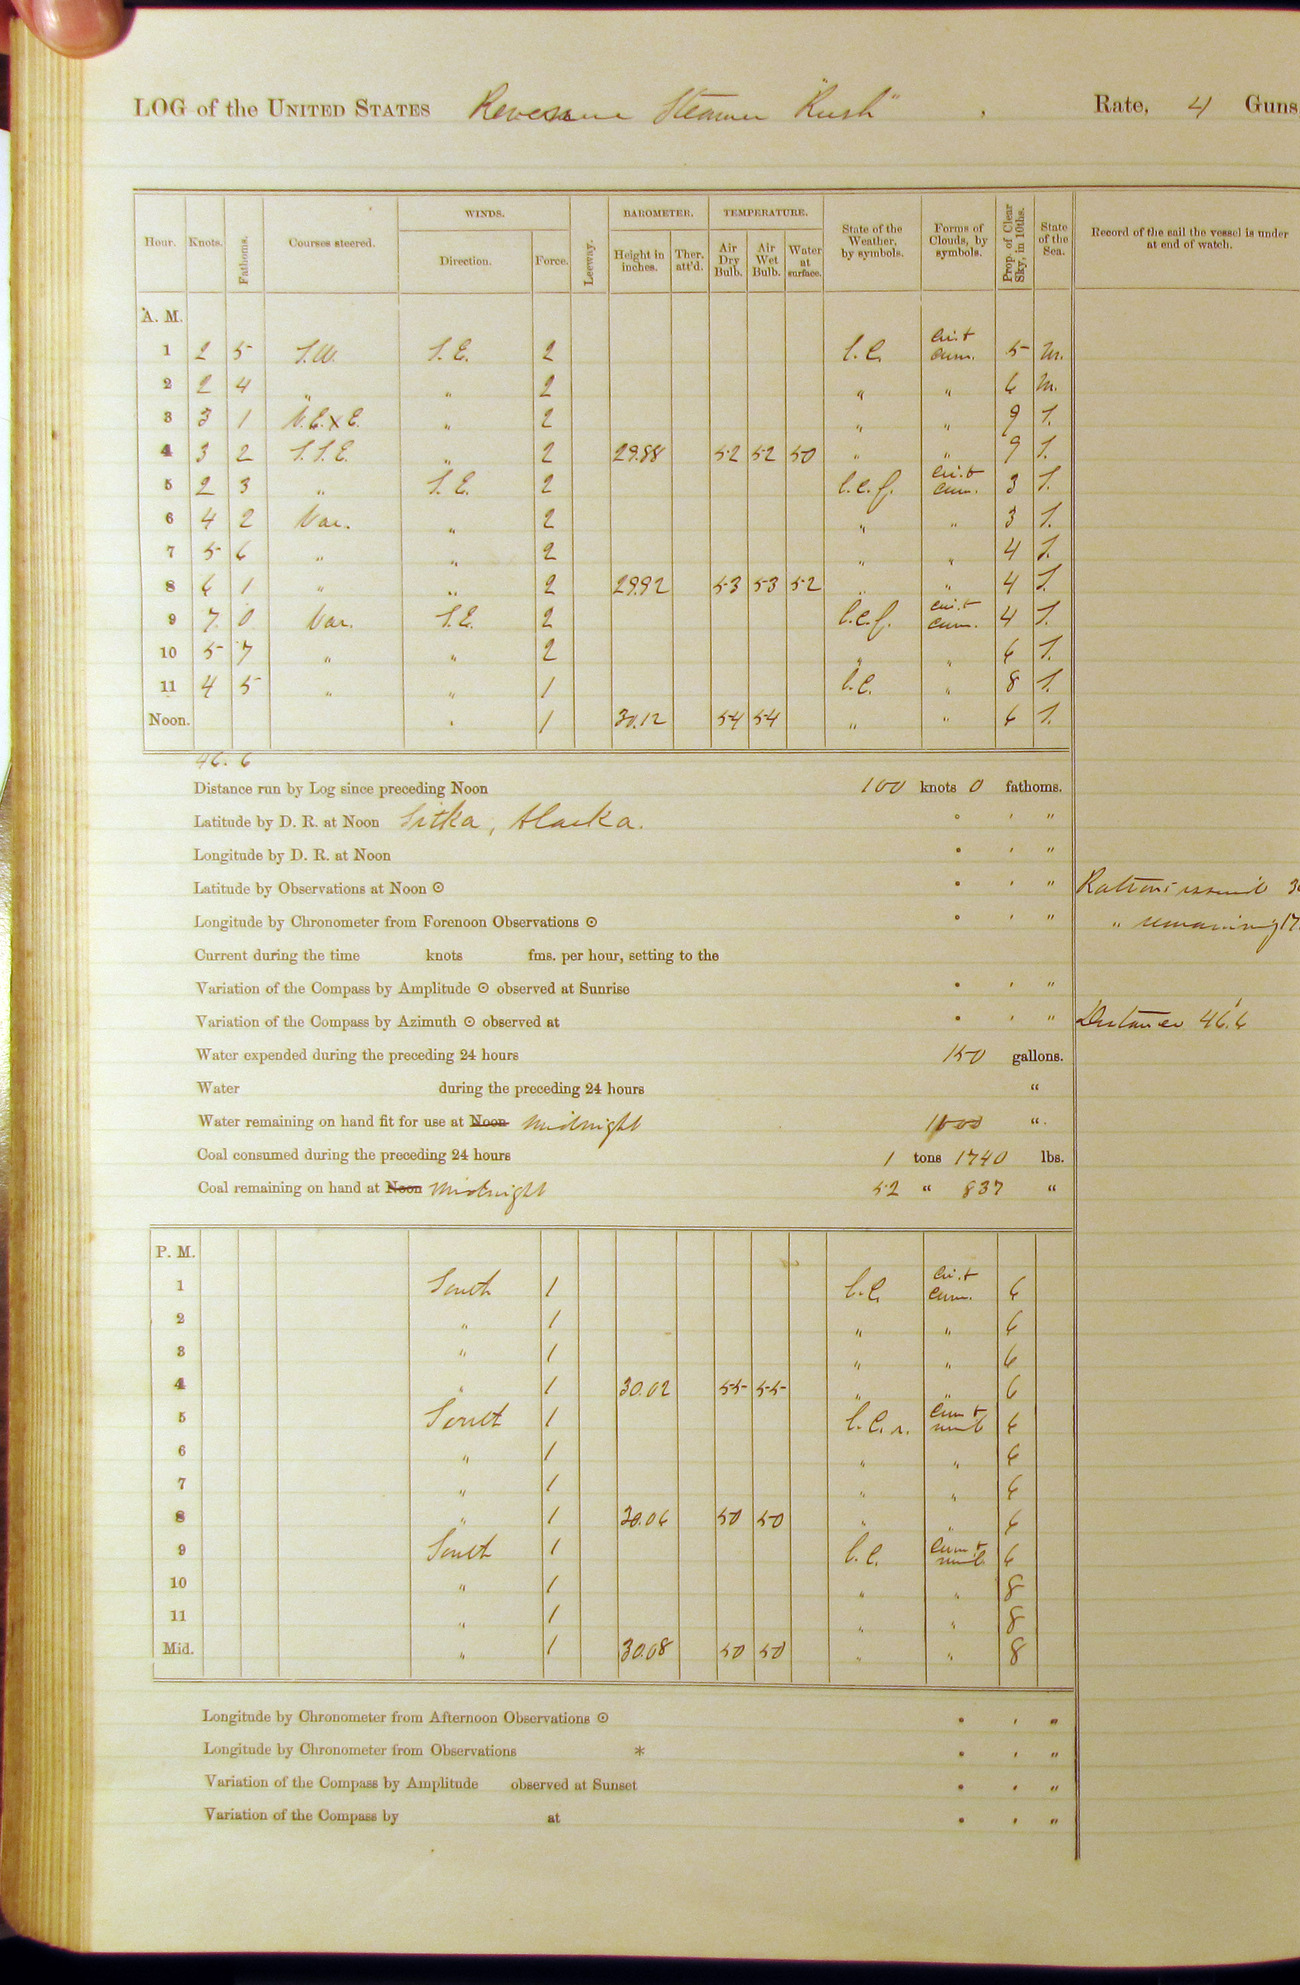 LOG of the UNITED STATES Revenue Steamer "Rush", Rate, 4 Guns,
Hour. Knots. Fathoms. Courses steered. WINDS. Direction. Force. Leeway. BAROMETER. Height in inches. Ther. att'd. TEMPERATURE. Air Dry Bulb. Air Wet Bulb. Water at surface. State of the Weather, by symbols. Forms of Clouds, by symbols. Prop. of Clear Sky, in 10ths. State of the Sea. Record of the sail the vessel is under at end of watch.
A. M.
1 2 5 S.W. S.E. 2 b.c. cir. & cum. 5 m.
2 2 4 " " 2 " " 6 m.
3 3 1 N.E. x E. " 2 " " 9 S.
4 3 2 S.S.E. " 2 29.88 52 52 50 " " 9 S.
5 2 3 " S.E. 2 b.c.f. cir. & cum. 3 S.
6 4 2 Var. " 2 " " 3 S.
7 5 6 " " 2 " " 4 S.
8 6 1 " " 2 29.92 53 53 52 " " 4 S.
9 7 0 Var. S.E. 2 b.c.f. cir. & cum. 4 S.
10 5 7 " " 2 " " 6 S.
11 4 5 " " 1 b.c. " 8 S.
Noon. " 1 30.12 54 54 " " 6 S.
46. 6
Distance run by Log since preceding Noon 100 knots 0 fathoms.
Latitude by D. R. at Noon Sitka, Alaska. ° ' "
Longitude by D. R. at Noon ° ' "
Latitude by Observations at Noon ⊙ ° ' " Rations issued 3
Longitude by Chronometer from Forenoon Observations ⊙ ° ' " " remaining 17
Current during the time knots fms. per hour, setting to the
Variation of the Compass by Amplitude ⊙ observed at Sunrise ° ' "
Variation of the Compass by Azimuth ⊙ observed at ° ' " Distance 46.'6
Water expended during the preceding 24 hours 150 gallons.
Water during the preceding 24 hours "
Water remaining on hand fit for use at Noon Midnight "
Coal consumed during the preceding 24 hours 1 tons 1740 lbs.
Coal remaining on hand at Noon Midnight 52 " 837 "
P. M.
1 South 1 b.c. cir. & cum. 6
2 " 1 " " 6
3 " 1 " " 6
4 " 1 30.02 55 55 " " 6
5 South 1 b.c.r. cum & nimb 6
6 " 1 " " 6
7 " 1 " " 6
8 " 1 30.06 50 50 " " 6
9 South 1 b.c. cum & nimb 6
10 " 1 " " 8
11 " 1 " " 8
Mid. " 1 30.08 50 50 " " 8
Longitude by Chronometer from Afternoon Observations ⊙ ° ' "
Longitude by Chronometer from Observations * ° ' "
Variation of the Compass by Amplitude observed at Sunset ° ' "
Variation of the Compass by at ° ' "